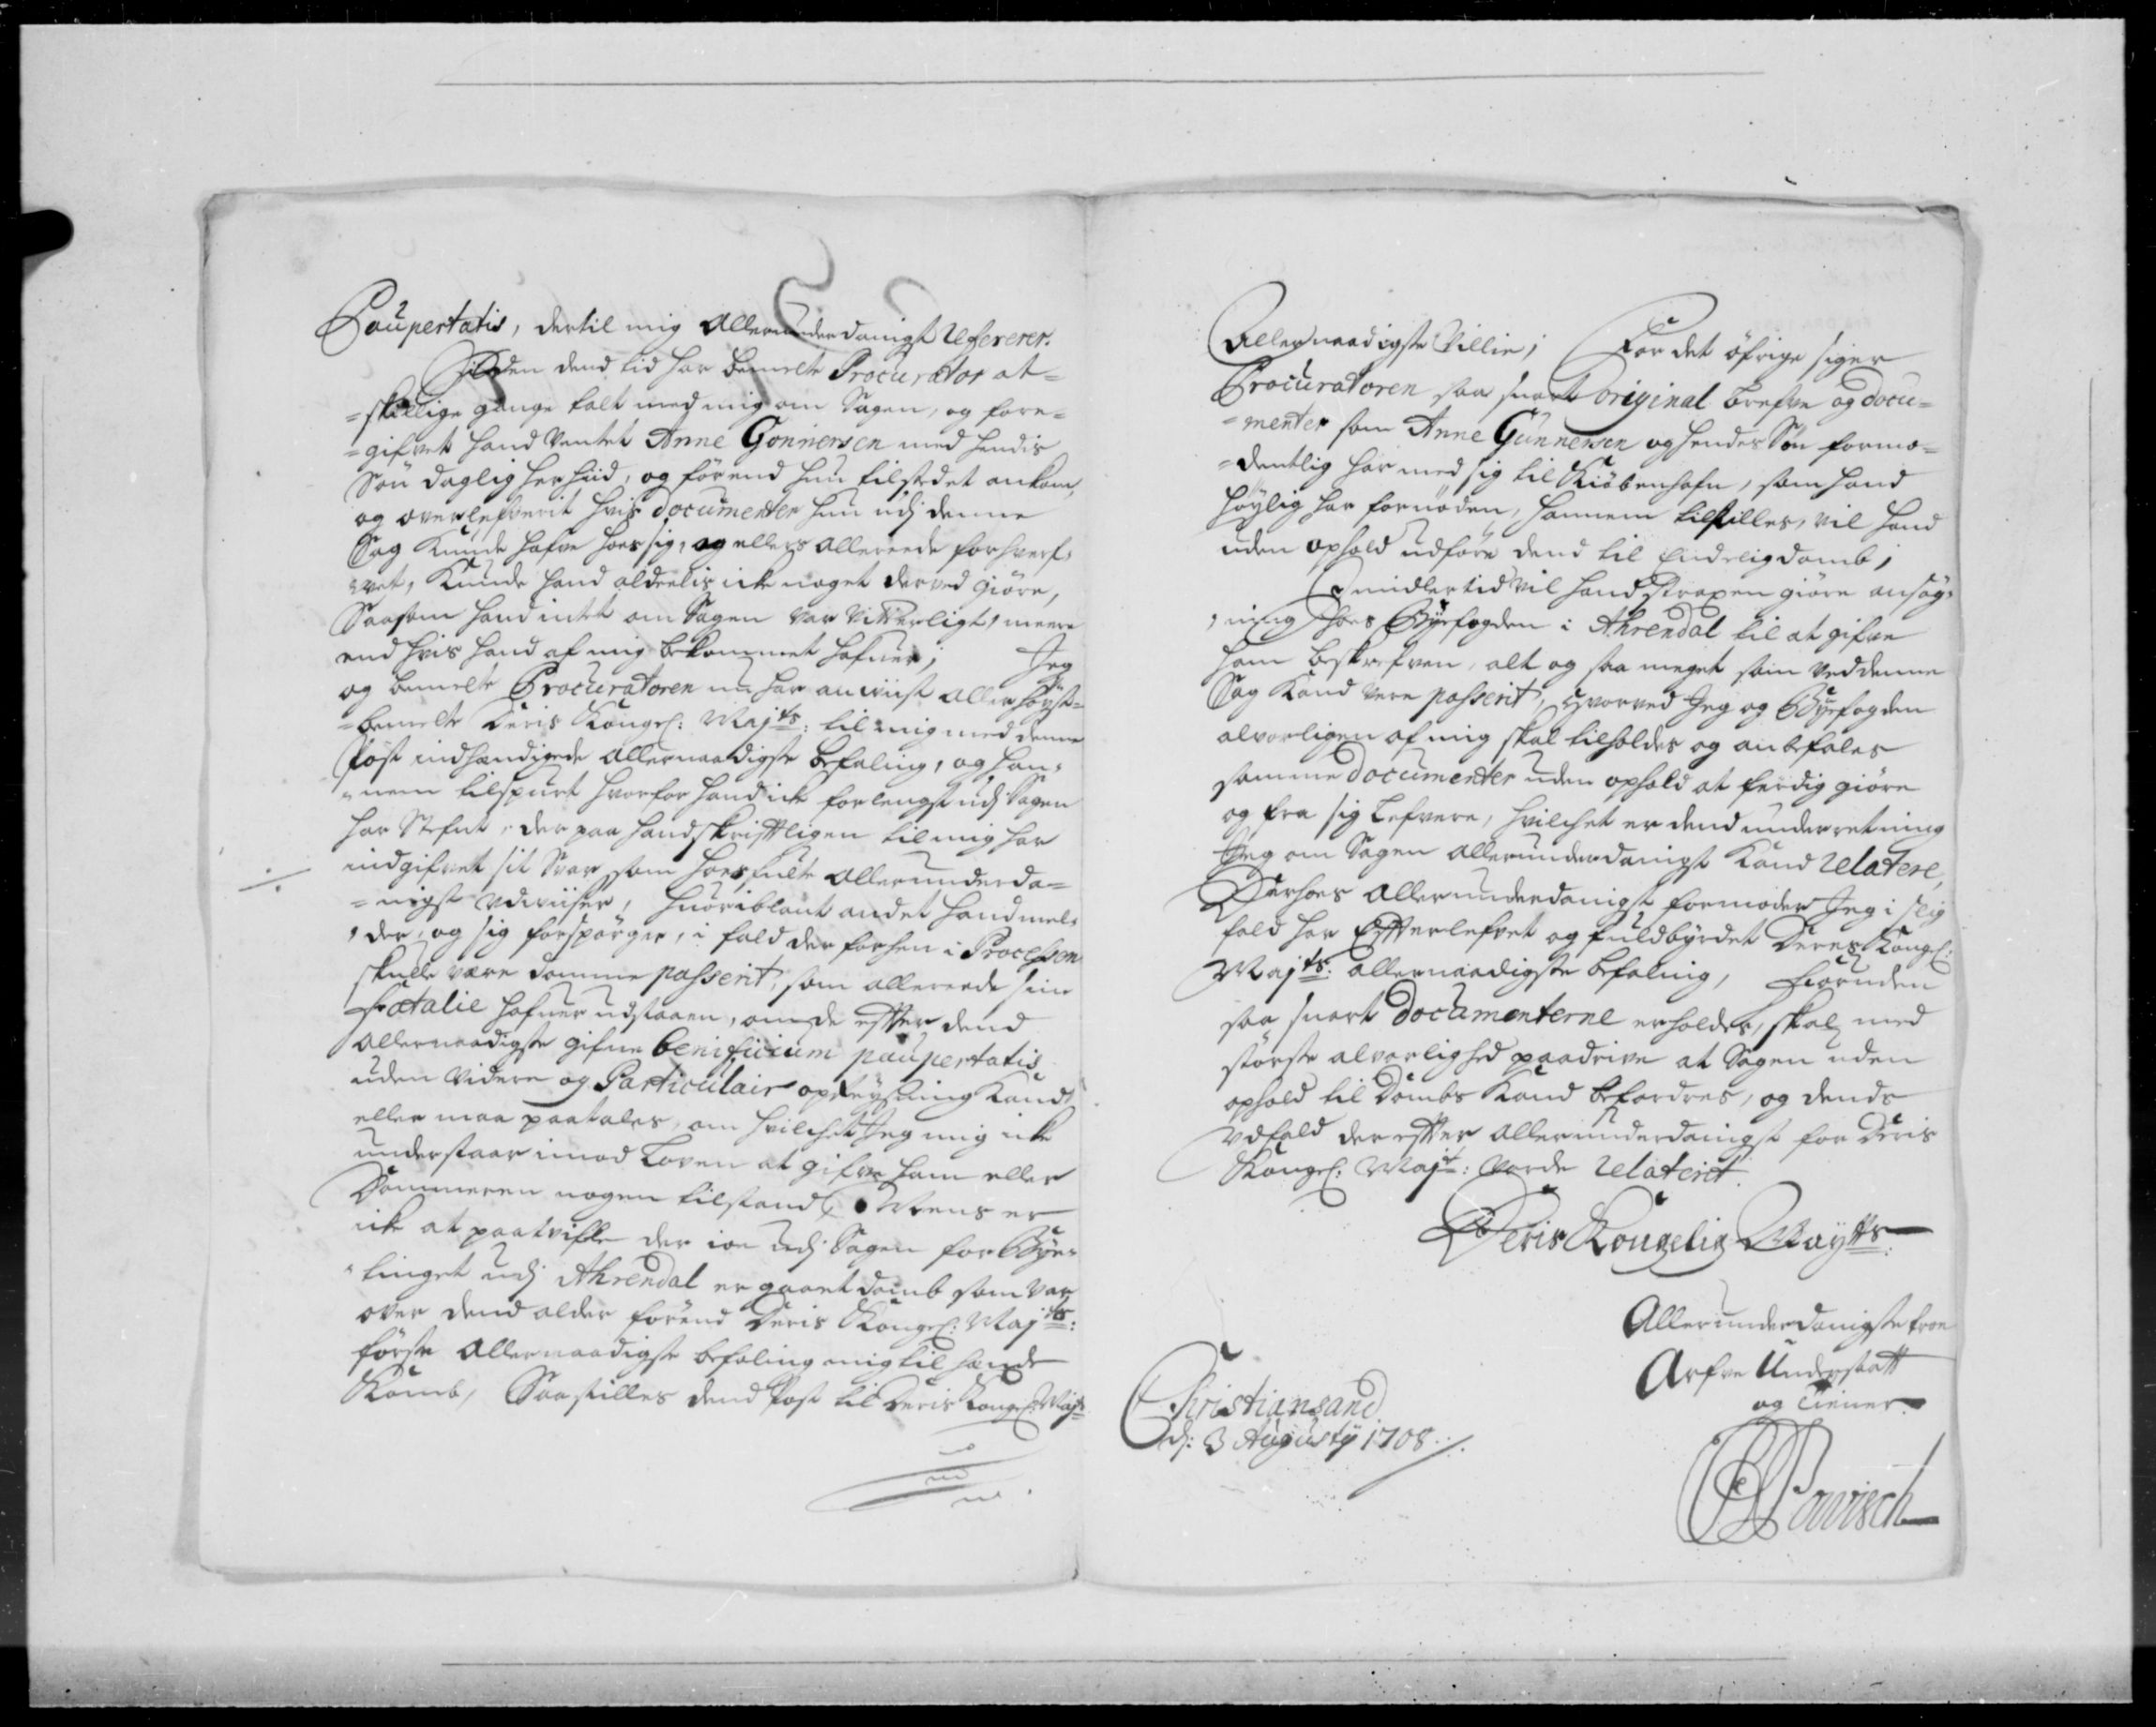 Paupertatis, dertil mig Allerunderdanigst Refererer.
Siden dend tid har bemelte Procurator at-
=skillige gange talt med mig om Sagen, og fore-
=gifvet hand ventet Anne Gonnersen med hendis
Søn daglig her hid, og førend hun tilstædet ankom,
og ofverlefverit hvis documenter hun udj denne
Sag kunde hafve hos sig, og ellers allereede forhverf-
vet, kunde hand aldeelis icke noget derved giøre,
Saasom hand intet om Sagen var vitterligt, meere
end hvis hand af mig bekommet hafver; Jeg
og bemelte Procuratoren nu har anviist aller høyst-
=bemelte Deris Kongel: Maj:ts: til mig med denne
Post indhændigede allernaadigste befaling, og han-
nem tilspurt hvorfor hand icke forlengst udj Sagen
har Stefnt, der paa hand skrifftligen til mig har
indgifvet sit Svar som hosfulte allerunderda-
=nigst udviiser, hvoriblant andet hand mel-
der, og sig forspørger, i fald der forhen i Processen
skulle være domme passerit, som allereede sine
Fatalie hafver udstaaen, om de effter dend
allernaadigste gifne benificium paupertatis
uden videre og Particulair opreysning kand
eller maa paatales, om hvilchet Jeg mig icke
understaar imod Loven at gifve ham eller
Dommeren nogen tilstand, Mens er
icke at paatvifle der ioe udj Sagen for Bye-
tinget udj Ahrendal er gaaet domb som var
over dend alder førend Deris Kongel: Maj:ts:
første allernaadigste befaling mig til hænde
Komb, Saa stilles dend Post til Deris Kongel: Maj:ts
Allernaadigste Villie; For det øfrige siger
Procuratoren saa snart original brefve og docu-
=menter som Anne Gunnersen og hendes Søn formo-
=dentlig har med sig til Kiøbenhafn, som hand
høylig har fornøden, hannem tilstilles, vil hand
uden ophold udføre dend til Endelig domb;
Imidlertid vil hand straxen giøre ansøg-
ning hos Byefogden i Ahrendal til at gifve
ham beskrefven, alt og saa meget som ved denne
Sag kand vere passerit, hvorved Jeg og Byefogden
alvorligen af mig skal tilholdes og anbefales
samme documenter uden ophold at ferdig giøre
og fra sig Lefvere, hvilchet er dend underretning
Jeg om Sagen allerunderdanigst kand relatere,
Derhos allerunderdanigst formoder Jeg i slig
fald har Effterlefvet og fuldbyrdet Deres Kongel:
Maj:ts: allernaadigste befaling, foruden
saa snart documenterne erholdes, skal med
største alvorlighed paadrive at Sagen uden
ophold til Dombs kand befordres, og dends
udfald der effter allerunderdanigst for Deris
Kongel: Maj:t: vorde relaterit.
Deris Kongelig Mayts:
Allerunderdanigste troe
Arfve Undersaatt
og Tiener
Christiansand
d: 3 Augusty 1708